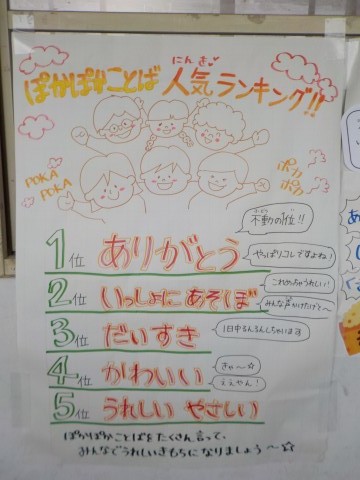 にんき
ぽかぽかことば 人気ランキング!!
POKA
POKA
ポカ
ポカ
ふどう
不動の1位!!
1位 ありがとう
やっぱりコレですよね!
2位 いっしょに あそぼ
これめっちゃうれしい!
みんな声かけたげて〜
3位 だいすき
1日中るんるんしちゃいます
4位 かわいい
きゃ〜☆
ええやん!
5位 うれしい やさしい
ぽかぽかことばをたくさん言って、
みんなでうれしいきもちになりましょう〜☆